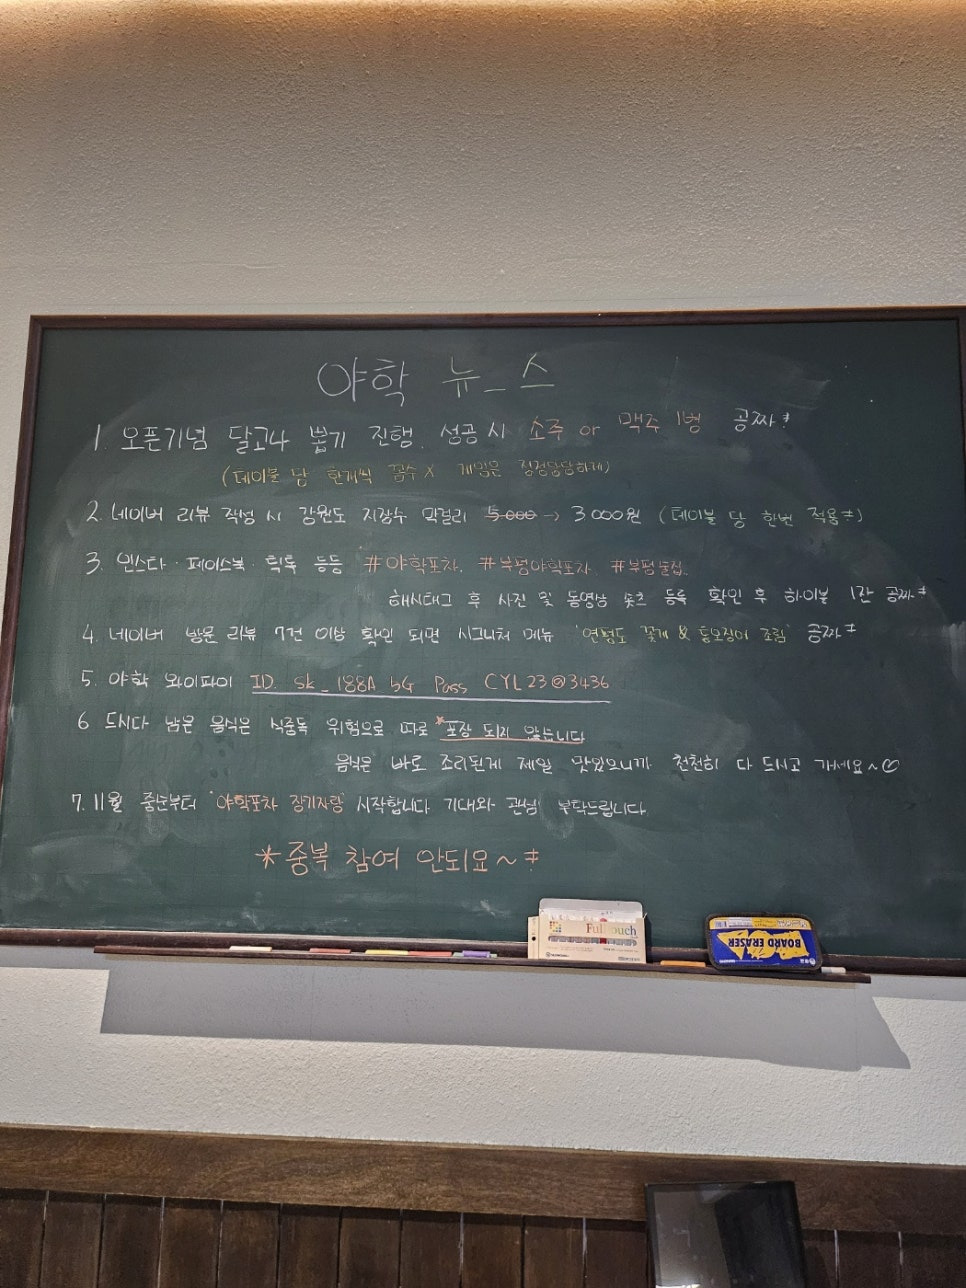 야학 뉴_스
1. 오픈기념 달고나 뽑기 진행. 성공 시 소주 or 맥주 1병 공짜!
(테이블 당 한개씩 꼼수X 게임은 정정당당하게)
2. 네이버 리뷰 작성 시 강원도 지장수 막걸리 5.000 → 3000원 (테이블 당 한번 적용!)
3. 인스타·페이스북·틱톡 등등 #야학포차. #부평야학포차 #부평술집.
해시태그 후 사진 및 동영상 숏츠 등록 확인 후 하이볼 1잔 공짜!
4. 네이버 방문 리뷰 7건 이상 확인 되면 시그니처 메뉴 '연평도 꽃게 & 통오징어 조림' 공짜!
5. 야학 와이파이 ID. SK_188A 5G Pass CYL23@3436
6 드시다 남은 음식은 식중독 위험으로 따로 *포장 되지 않습니다
음식은 바로 조리된게 제일 맛있으니까 천천히 다 드시고 가세요~♡
7. 11월 중순부터 '야학포차 장기자랑' 시작합니다 기대와 관심 부탁드립니다
*중복 참여 안되요~!
Full Touch
BOARD ERASER